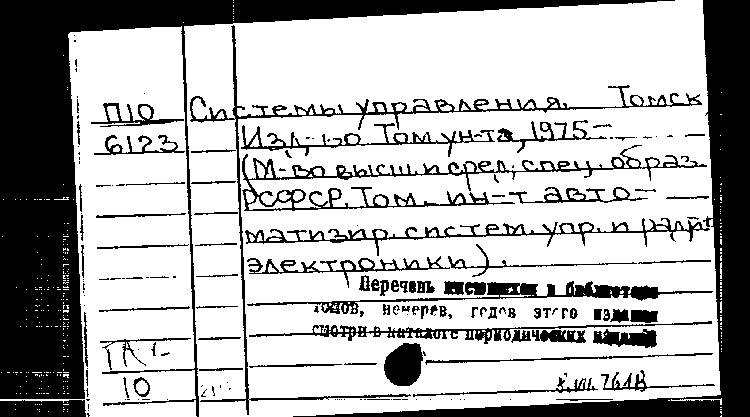 П10 Системы управления. Томск
6123 Изд-во Том. ун-та, 1975-
(М-во высш. и сред. спец. образ.
РСФСР. Том. ин-т авто-
матизир. систем. упр. и радио
электроники).
Перечень имеющихся в библиотеке
томов, номеров, годов этого издания
смотри в каталоге периодических изданий
10